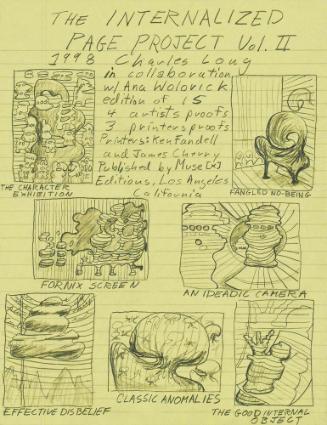 THE INTERNALIZED
PAGE PROJECT Vol. II
1998 Charles Long
in collaboration
w/ Ana Wolovick
edition of 15
4 artists proofs
3 printers proofs
Printers: Ken Fandell
and James Cherry
Published by Muse [X]
Editions, Los Angeles
California
THE CHARACTER
EXHIBITION
FANGLED NO-BEING
FORNIX SCREEN
AN IDEADIC CAMERA
EFFECTIVE DISBELIEF
CLASSIC ANOMALIES
THE GOOD INTERNAL
OBJECT